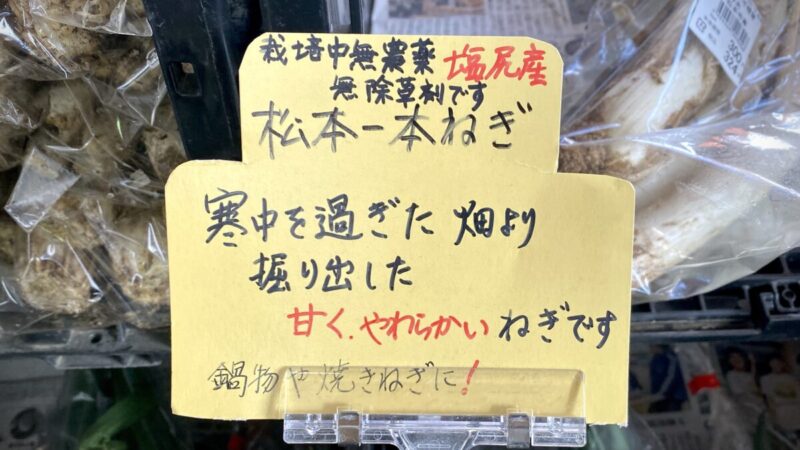 栽培中無農薬 塩尻産
無除草剤です
松本一本ねぎ
寒中を過ぎた畑より
掘り出した
甘く、やわらかいねぎです
鍋物や焼きねぎに!
300
324